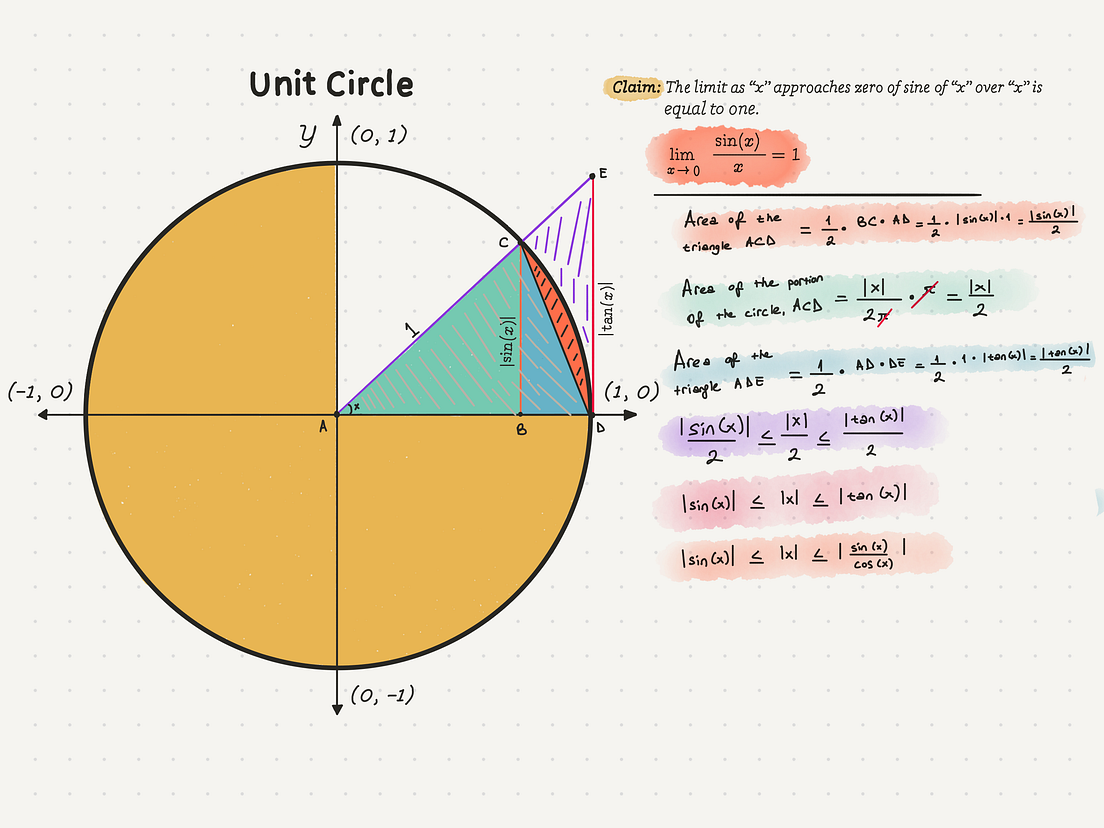 Unit Circle
Claim: The limit as “x” approaches zero of sine of “x” over “x” is
equal to one.
lim x→0 sin(x)/x = 1
Area of the
triangle ACD = 1/2 · BC · AD = 1/2 · |sin(x)| · 1 = |sin(x)|/2
Area of the portion
of the circle, ACD = |x|/2π · π = |x|/2
Area of the
triangle ADE = 1/2 · AD · DE = 1/2 · 1 · |tan(x)| = |tan(x)|/2
|sin(x)|/2 ≤ |x|/2 ≤ |tan(x)|/2
|sin(x)| ≤ |x| ≤ |tan(x)|
|sin(x)| ≤ |x| ≤ |sin(x)/cos(x)|
y
(0, 1)
E
C
1
|sin(x)|
|tan(x)|
(-1, 0)
(1, 0)
x
A
B
D
(0, -1)